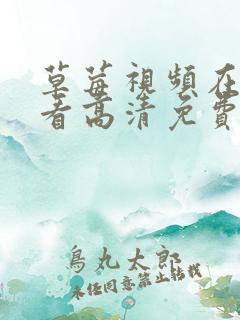 草莓視頻在
看高清免費
鳥丸太郎
未經同意禁止轉載